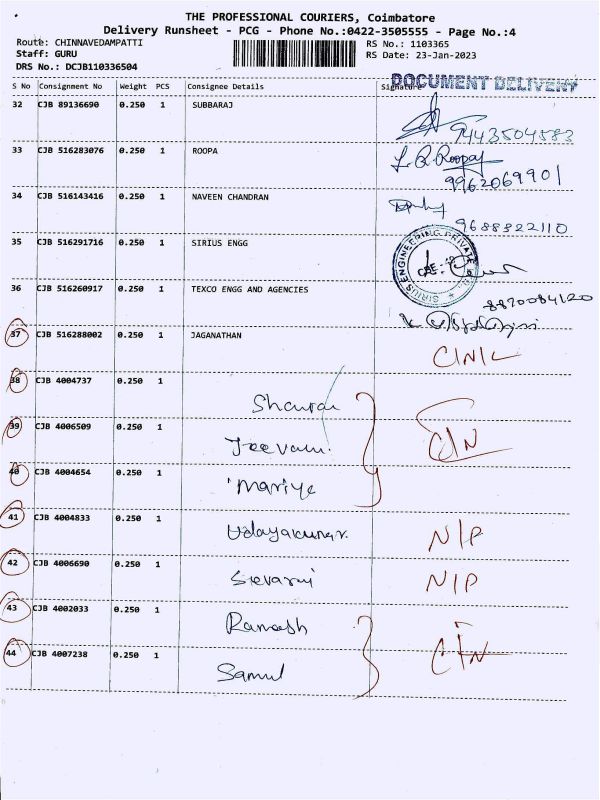 THE PROFESSIONAL COURIERS, Coimbatore
Delivery Runsheet - PCG - Phone No.:0422-3505555 - Page No.:4
Route: CHINNAVEDAMPATTI RS No.: 1103365
Staff: GURU RS Date: 23-Jan-2023
DRS No.: DCJB110336504
DOCUMENT DELIVERY
S No Consignment No Weight PCS Consignee Details Signature
32 CJB 89136690 0.250 1 SUBBARAJ
9443504583
33 CJB 516283076 0.250 1 ROOPA
Roopa
9962069901
34 CJB 516143416 0.250 1 NAVEEN CHANDRAN
9688322110
35 CJB 516291716 0.250 1 SIRIUS ENGG
SIRIUS ENGINEERING PRIVATE
36 CJB 516260917 0.250 1 TEXCO ENGG AND AGENCIES
8870084120
37 CJB 516288002 0.250 1 JAGANATHAN
C/N/L
38 CJB 4004737 0.250 1
39 CJB 4006509 0.250 1
Jeevan C/N
40 CJB 4004654 0.250 1
Mariya
41 CJB 4004833 0.250 1
Udayakumar N/P
42 CJB 4006690 0.250 1
N/P
43 CJB 4002033 0.250 1
Ramesh
44 CJB 4007238 0.250 1
Samul